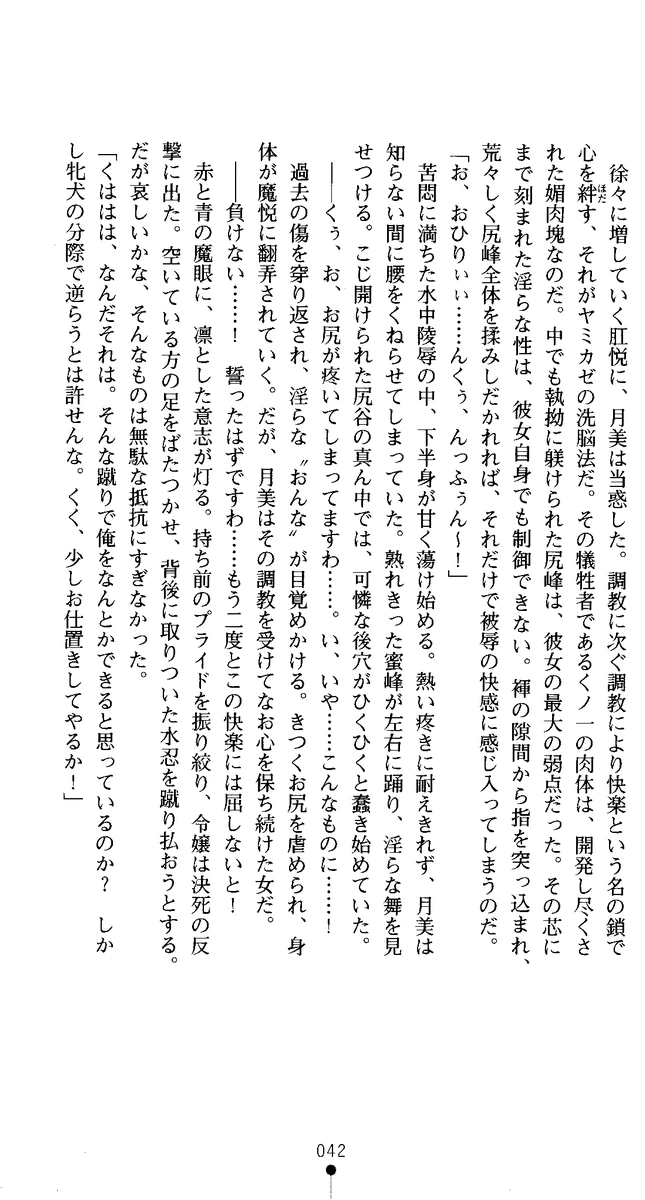 徐々に増していく肛悦に、月美は当惑した。調教に次ぐ調教により快楽という名の鎖で
心を絆す、それがヤミカゼの洗脳法だ。その犠牲者であるくノ一の肉体は、開発し尽くさ
れた媚肉塊なのだ。中でも執拗に躾けられた尻峰は、彼女の最大の弱点だった。その芯に
まで刻まれた淫らな性は、彼女自身でも制御できない。褌の隙間から指を突っ込まれ、
荒々しく尻峰全体を揉みしだかれれば、それだけで被辱の快感に感じ入ってしまうのだ。
「お、おひりぃぃ……んくぅ、んっふぅん～！」
　苦悶に満ちた水中陵辱の中、下半身が甘く蕩け始める。熱い疼きに耐えきれず、月美は
知らない間に腰をくねらせてしまっていた。熟れきった蜜峰が左右に踊り、淫らな舞を見
せつける。こじ開けられた尻谷の真ん中では、可憐な後穴がひくひくと蠢き始めていた。
　――くぅ、お、お尻が疼いてしまってますわ……。い、いや……こんなものに……！
　過去の傷を穿り返され、淫らな〝おんな〟が目覚めかける。きつくお尻を虐められ、身
体が魔悦に翻弄されていく。だが、月美はその調教を受けてなお心を保ち続けた女だ。
　――負けない……！　誓ったはずですわ……もう二度とこの快楽には屈しないと！
　赤と青の魔眼に、凛とした意志が灯る。持ち前のプライドを振り絞り、令嬢は決死の反
撃に出た。空いている方の足をばたつかせ、背後に取りついた水忍を蹴り払おうとする。
だが哀しいかな、そんなものは無駄な抵抗にすぎなかった。
「くははは、なんだそれは。そんな蹴りで俺をなんとかできると思っているのか？　しか
し牝犬の分際で逆らうとは許せんな。くく、少しお仕置きしてやるか！」
042